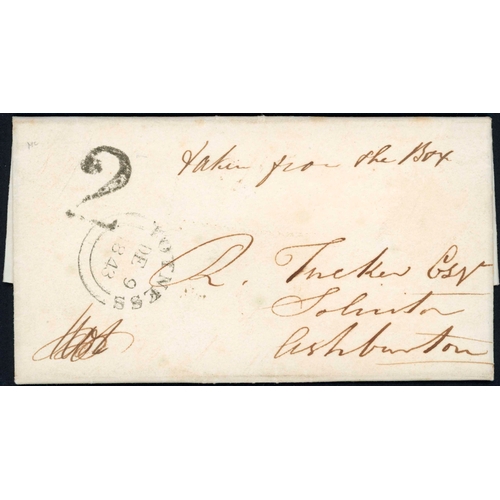 taken from the Box
2
TOTNESS
DE 9
1843
R. Tucker Esqr
Solicitor
Ashburton